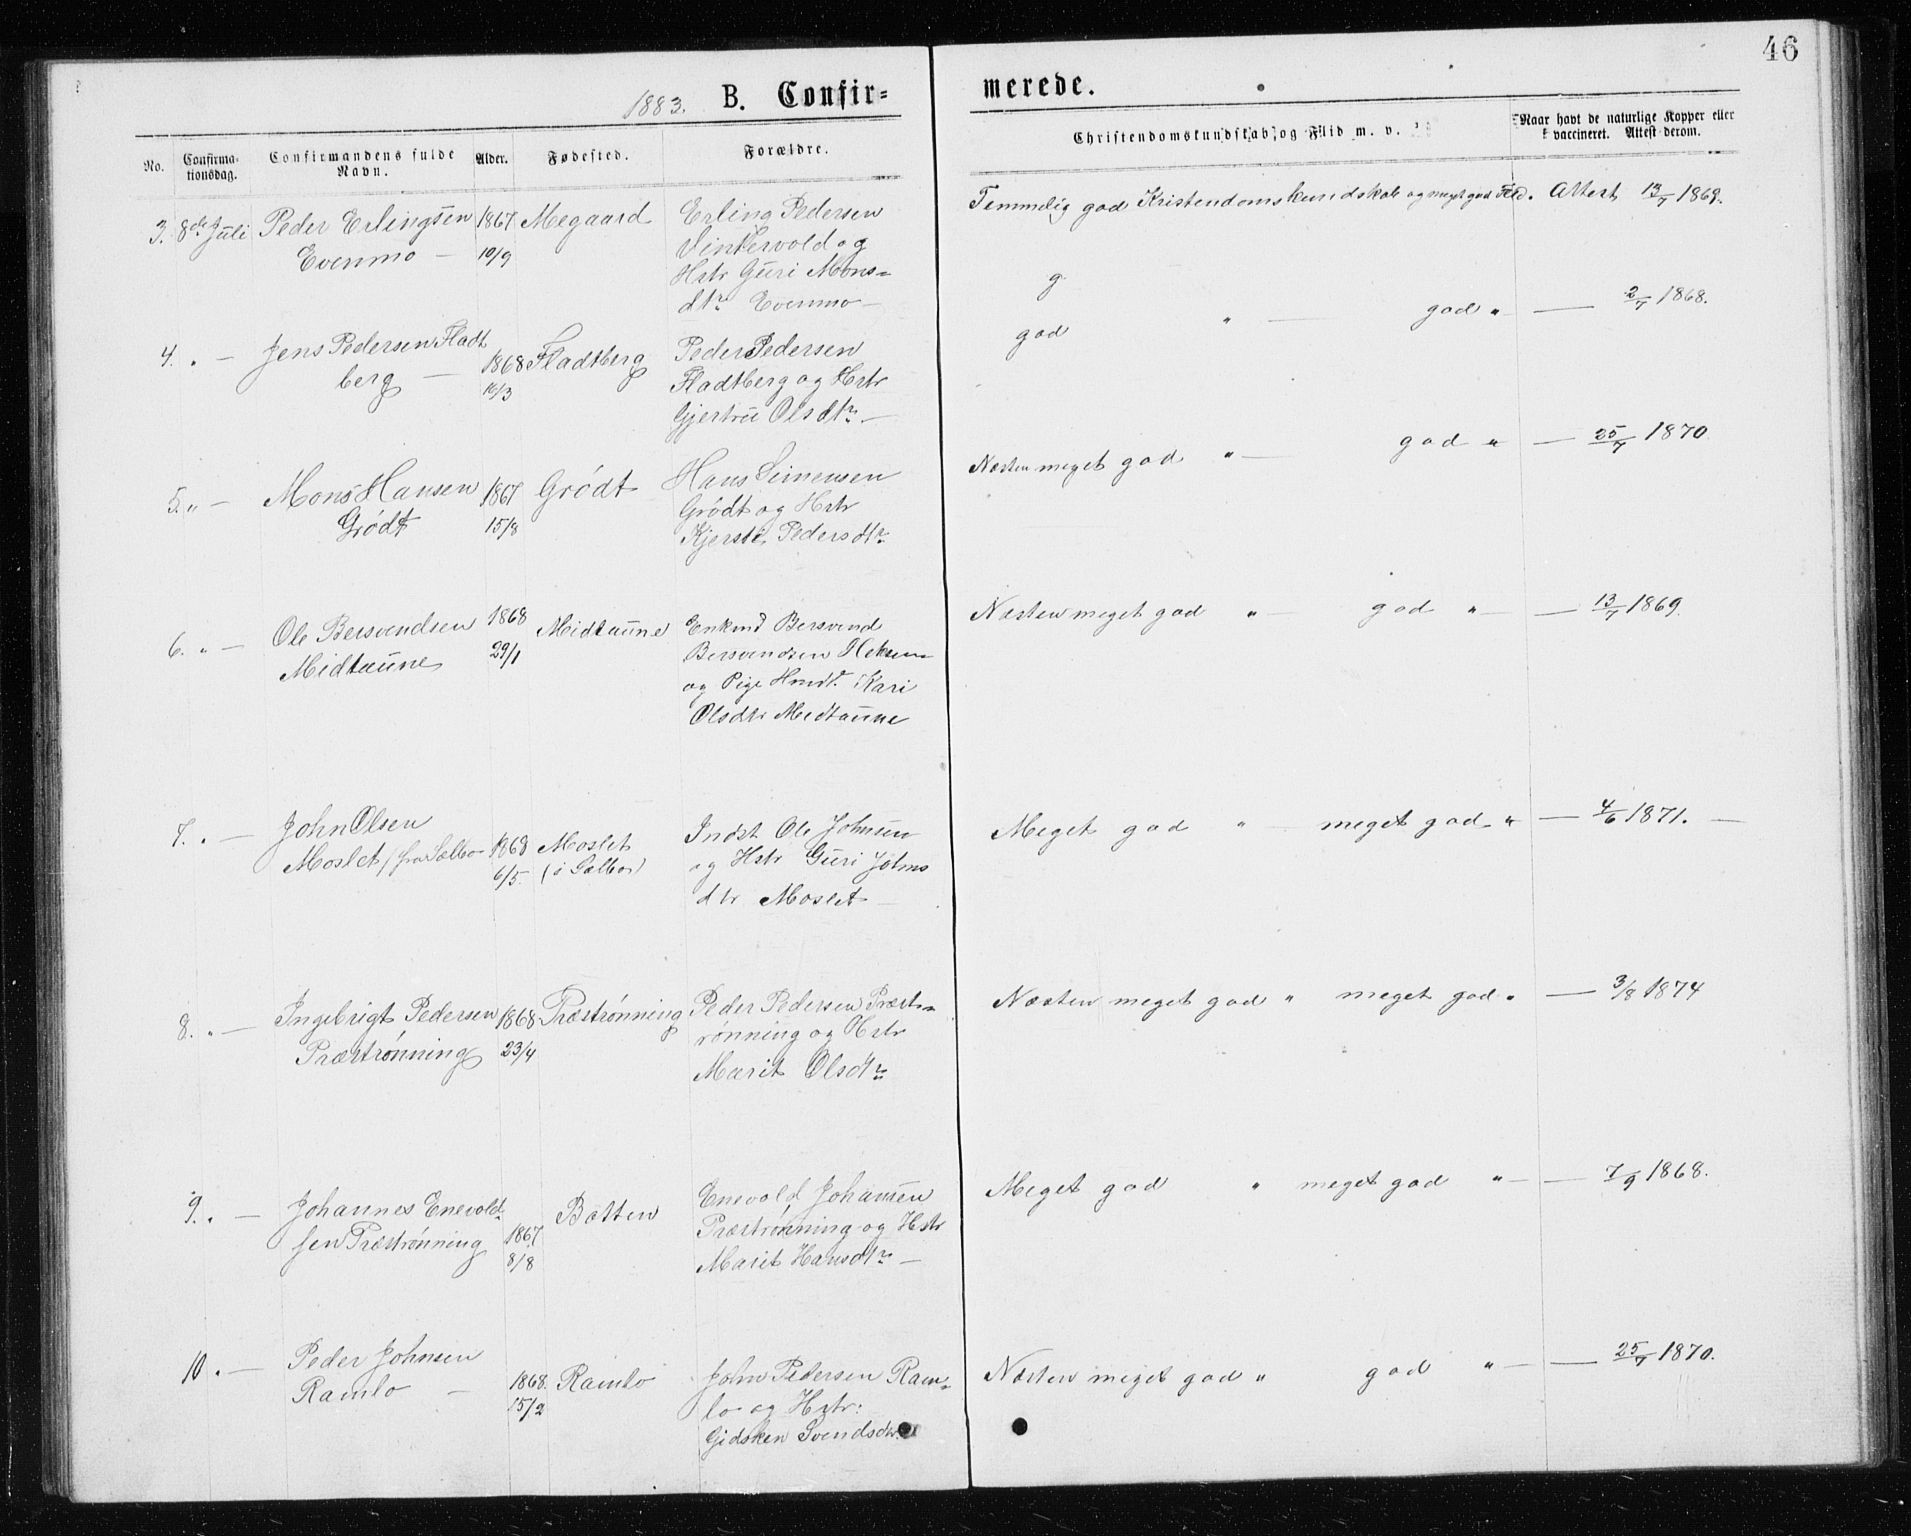 46
1883. B. Confir=
merede.
No.
Confirma-
tionsdag.
Confirmandens fulde
Navn.
Alder.
Fødested.
Forældre.
Christendomskundskab og Flid m. v.
Naar havt de naturlige Kopper eller
vaccineret. Attest derom.
3. 8de Juli
Peder Erlingsen
Evenmo —
1867
10/9
Megaard
Erling Pedersen
og
Hstr Guri Mons=
dtr Evenmo —
Temmelig god Kristendomskundskab og meget god Flid. Attest 13/7 1869.
g
4. " —
Jens Pedersen Fladt
berg —
1868
16/3
Fladtberg
Peder Pedersen
Fladtberg og Hstr
Gjertru Olsdtr —
god " — god " — 2/7 1868.
5. " —
Mons Hansen
Grødt
1867
15/8
Grødt
Hans Simensen
Grødt og Hstr
Kjersti Pedersdtr
Næsten meget god " — god " — 25/7 1870
6. " —
Ole Bersvendsen
Midtaune
1868
29/1
Midtaune
Enkmd Bersvend
Bersvendsen
og Pige Kari
Olsdtr Midtaune
Næsten meget god " — god " — — 13/7 1869.
7. " —
John Olsen
Moslet (fra Sælbo
1868
6/5.
Moslet
(i Sælbo)
Indst Ole Johnsen
og Hstr Guri Johns
dtr Moslet —
Meget god " — meget god " — 4/6 1871. —
8. " —
Ingebrigt Pedersen
Præstrønning
1868
23/4
Præstrønning
Peder Pedersen Præst=
rønning og Hstr
Marit Olsdtr
Næsten meget god " meget god " — 3/8 1874
9. " —
Johannes Enevold-
sen Præstrønning
1867
8/8
Batten
Enevold Johansen
Præstrønning og Hstr
Marit Hansdtr —
Meget god " meget god " — — 7/9 1868.
10 " —
Peder Johnsen
Ramlo —
1868.
15/2
Ramlo
John Pedersen Ram=
lo og Hstr:
Gjidsken Svendsdtr
Næsten meget god " god " — — 25/7 1870.